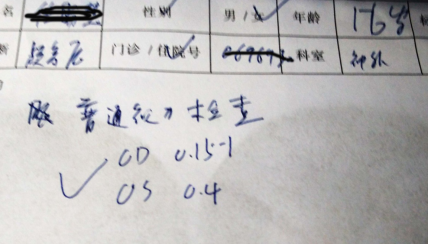 名 性别 男 / 女 年龄 17岁
门诊 / 住院号 科室 神外
眼 普通视力检查
OD 0.15-1
OS 0.4